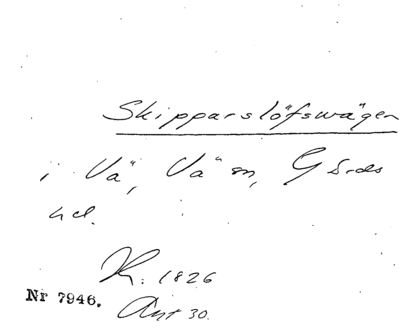 Skipparslöfswägen
i Vä, Vä sn, Gärds
hd.
K. 1826
Nr 7946.
Ant 30.